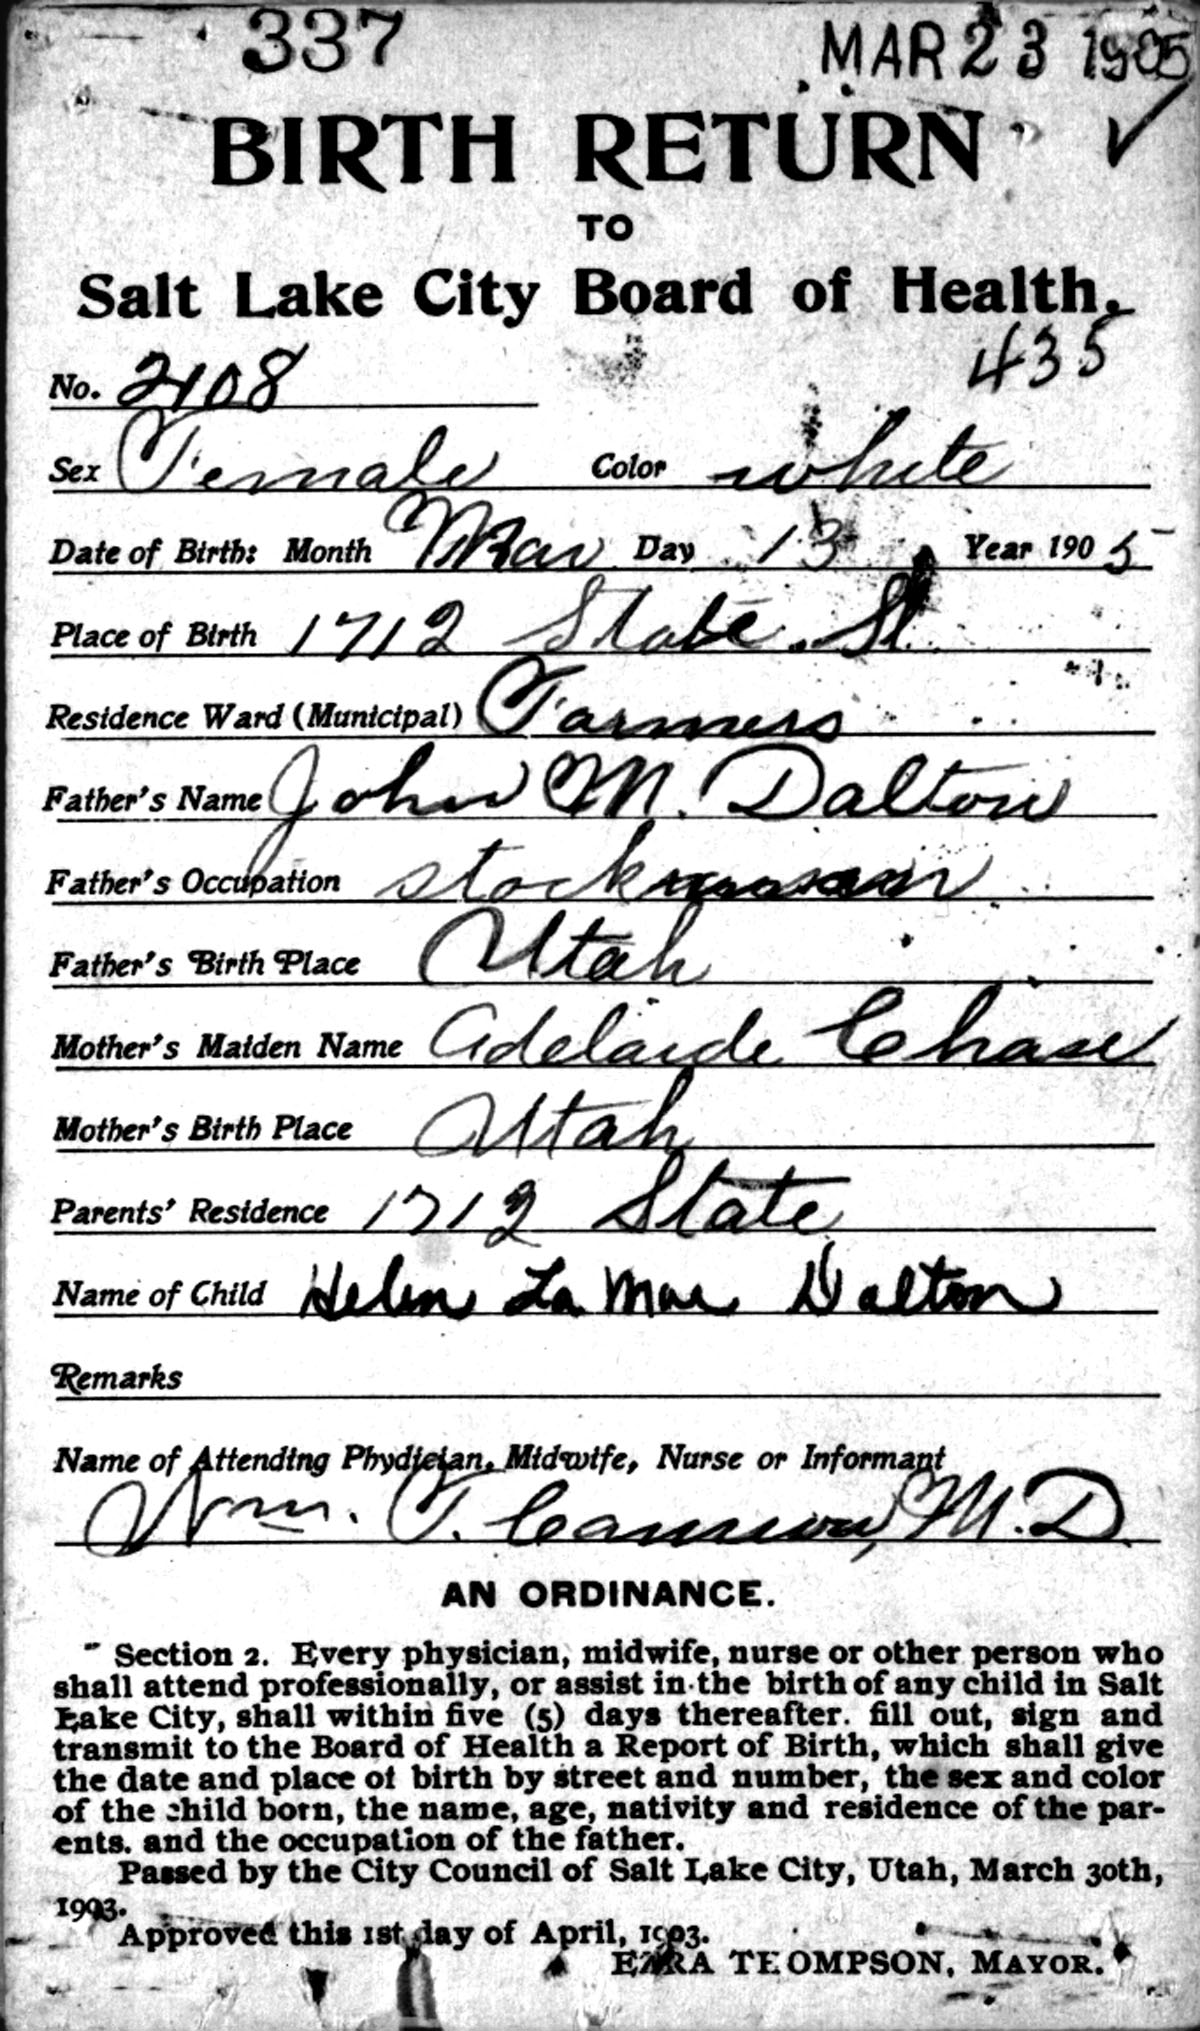 337 MAR 23 1905
BIRTH RETURN
TO
Salt Lake City Board of Health.
435
No. 2108
Sex Female Color white
Date of Birth: Month Mar Day 13 Year 1905
Place of Birth 1712 State St.
Residence Ward (Municipal) Farmers
Father's Name John M. Dalton
Father's Occupation stockman
Father's Birth Place Utah
Mother's Maiden Name Adelaide Chase
Mother's Birth Place Utah
Parents' Residence 1712 State
Name of Child Helen La Mae Dalton
Remarks
Name of Attending Phydician, Midwife, Nurse or Informant
Wm. T. Cannon, M.D.
AN ORDINANCE.
" Section 2. Every physician, midwife, nurse or other person who
shall attend professionally, or assist in the birth of any child in Salt
Lake City, shall within five (5) days thereafter. fill out, sign and
transmit to the Board of Health a Report of Birth, which shall give
the date and place of birth by street and number, the sex and color
of the child born, the name, age, nativity and residence of the par-
ents. and the occupation of the father.
Passed by the City Council of Salt Lake City, Utah, March 30th,
1903.
Approved this 1st day of April, 1903.
EZRA THOMPSON, MAYOR.